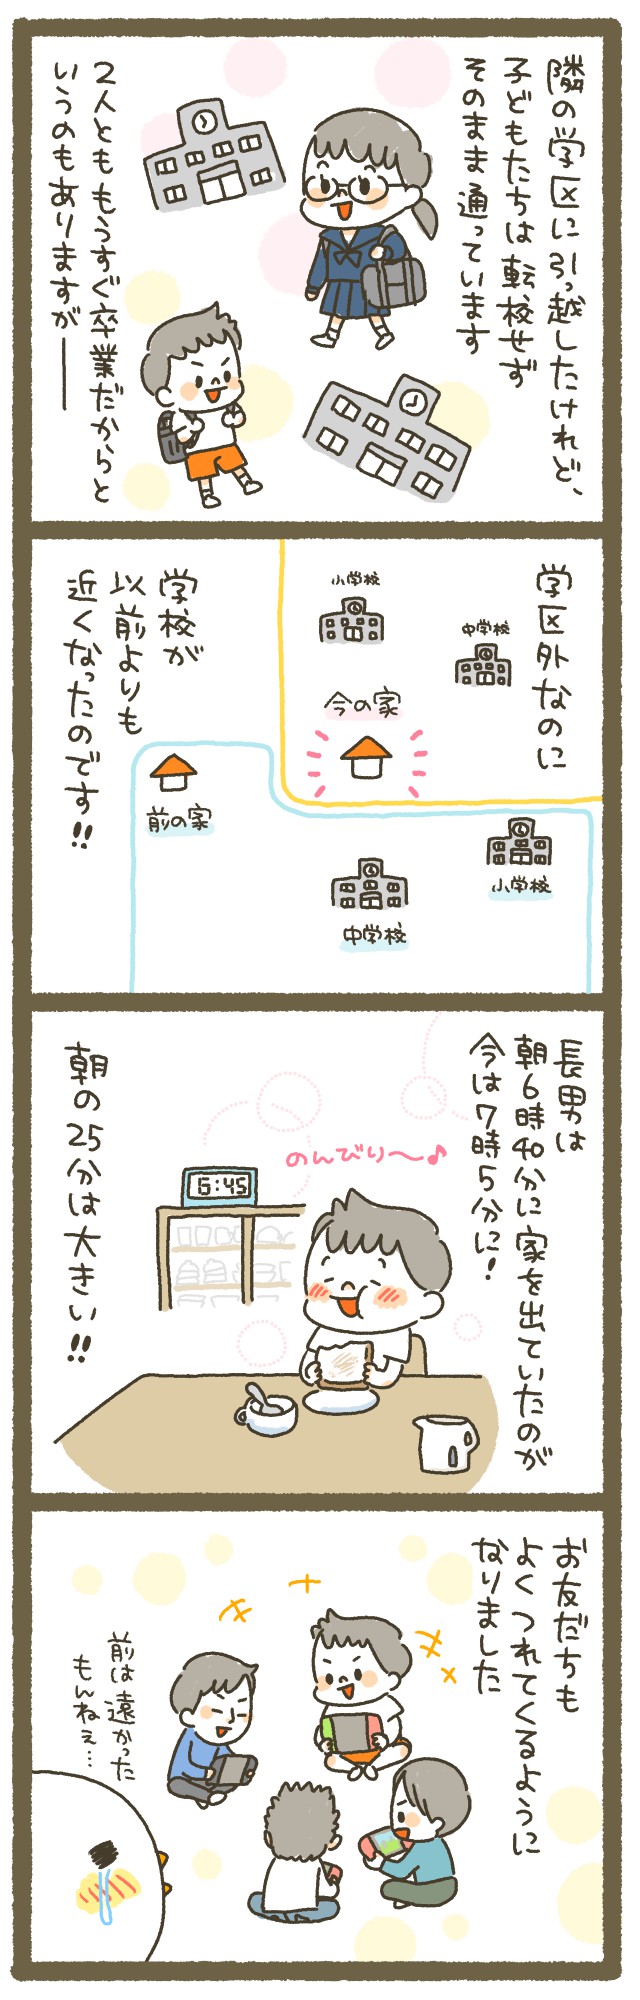 隣の学区に引っ越したけれど、
子どもたちは転校せず
そのまま通っています
2人とももうすぐ卒業だからと
いうのもありますが――
学区外なのに
小学校
中学校
今の家
学校が
以前よりも
近くなったのです!!
前の家
小学校
中学校
長男は
朝6時40分に家を出ていたのが
今は7時5分に!
のんびり〜♪
6:45
朝の25分は大きい!!
お友だちも
よくつれてくるように
なりました
前は遠かった
もんねぇ…